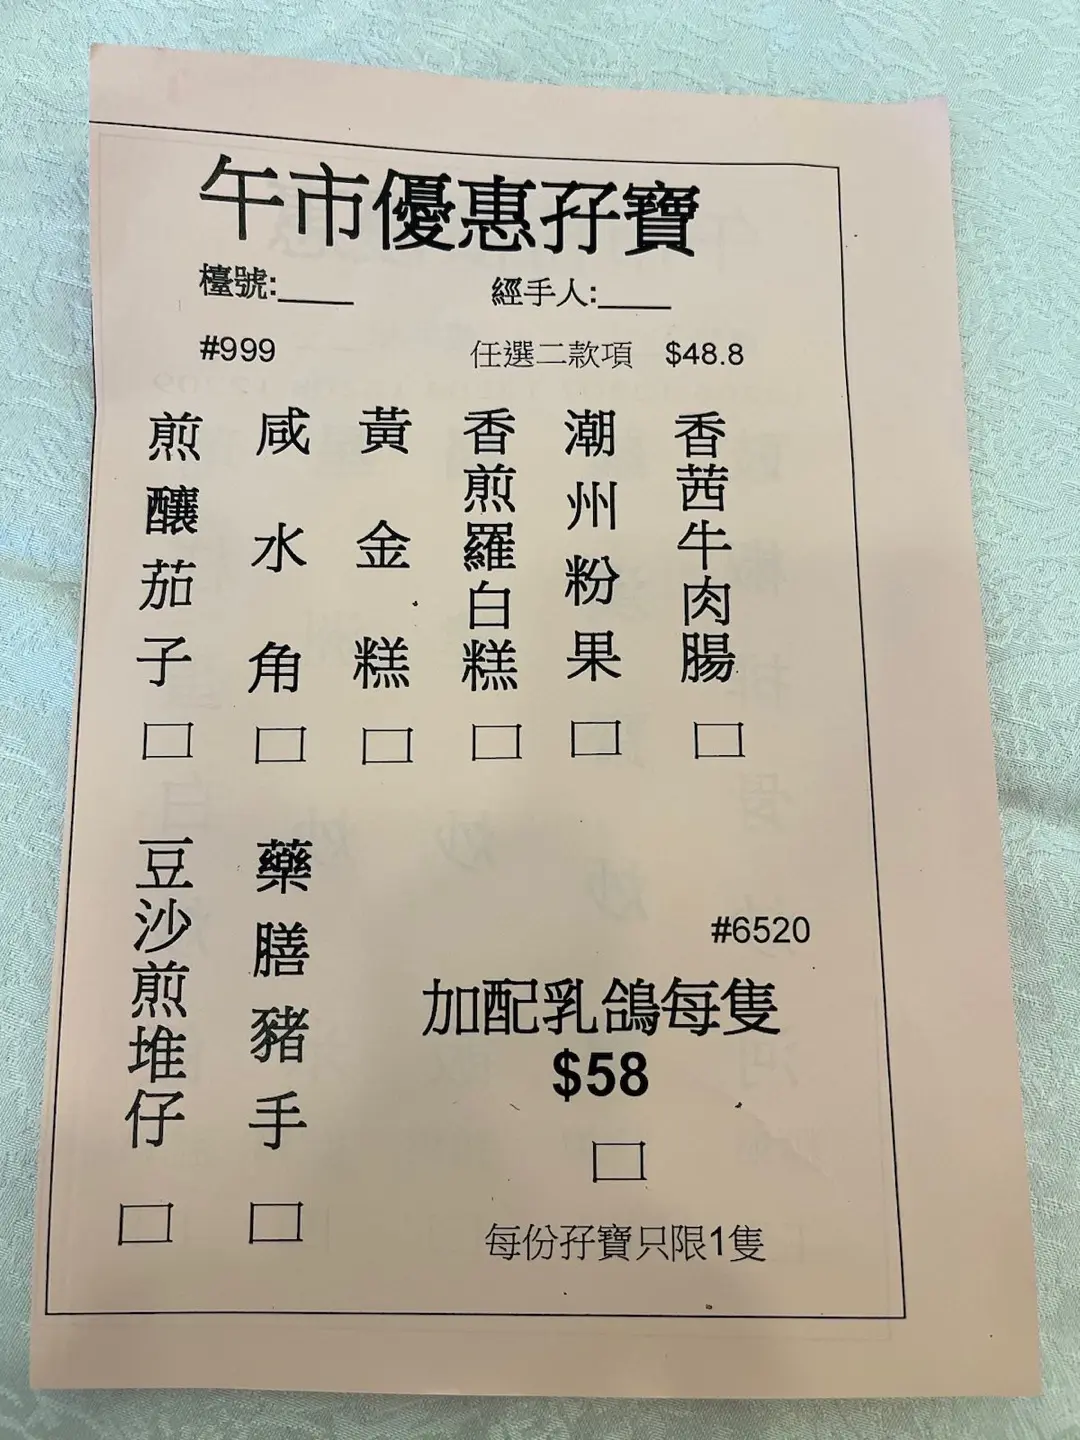 午市優惠孖寶
檯號:____
經手人:____
#999
任選二款項 $48.8
香茜牛肉腸
潮州粉果
香煎羅白糕
黃金糕
咸水角
煎釀茄子
藥膳豬手
豆沙煎堆仔
#6520
加配乳鴿每隻
$58
每份孖寶只限1隻